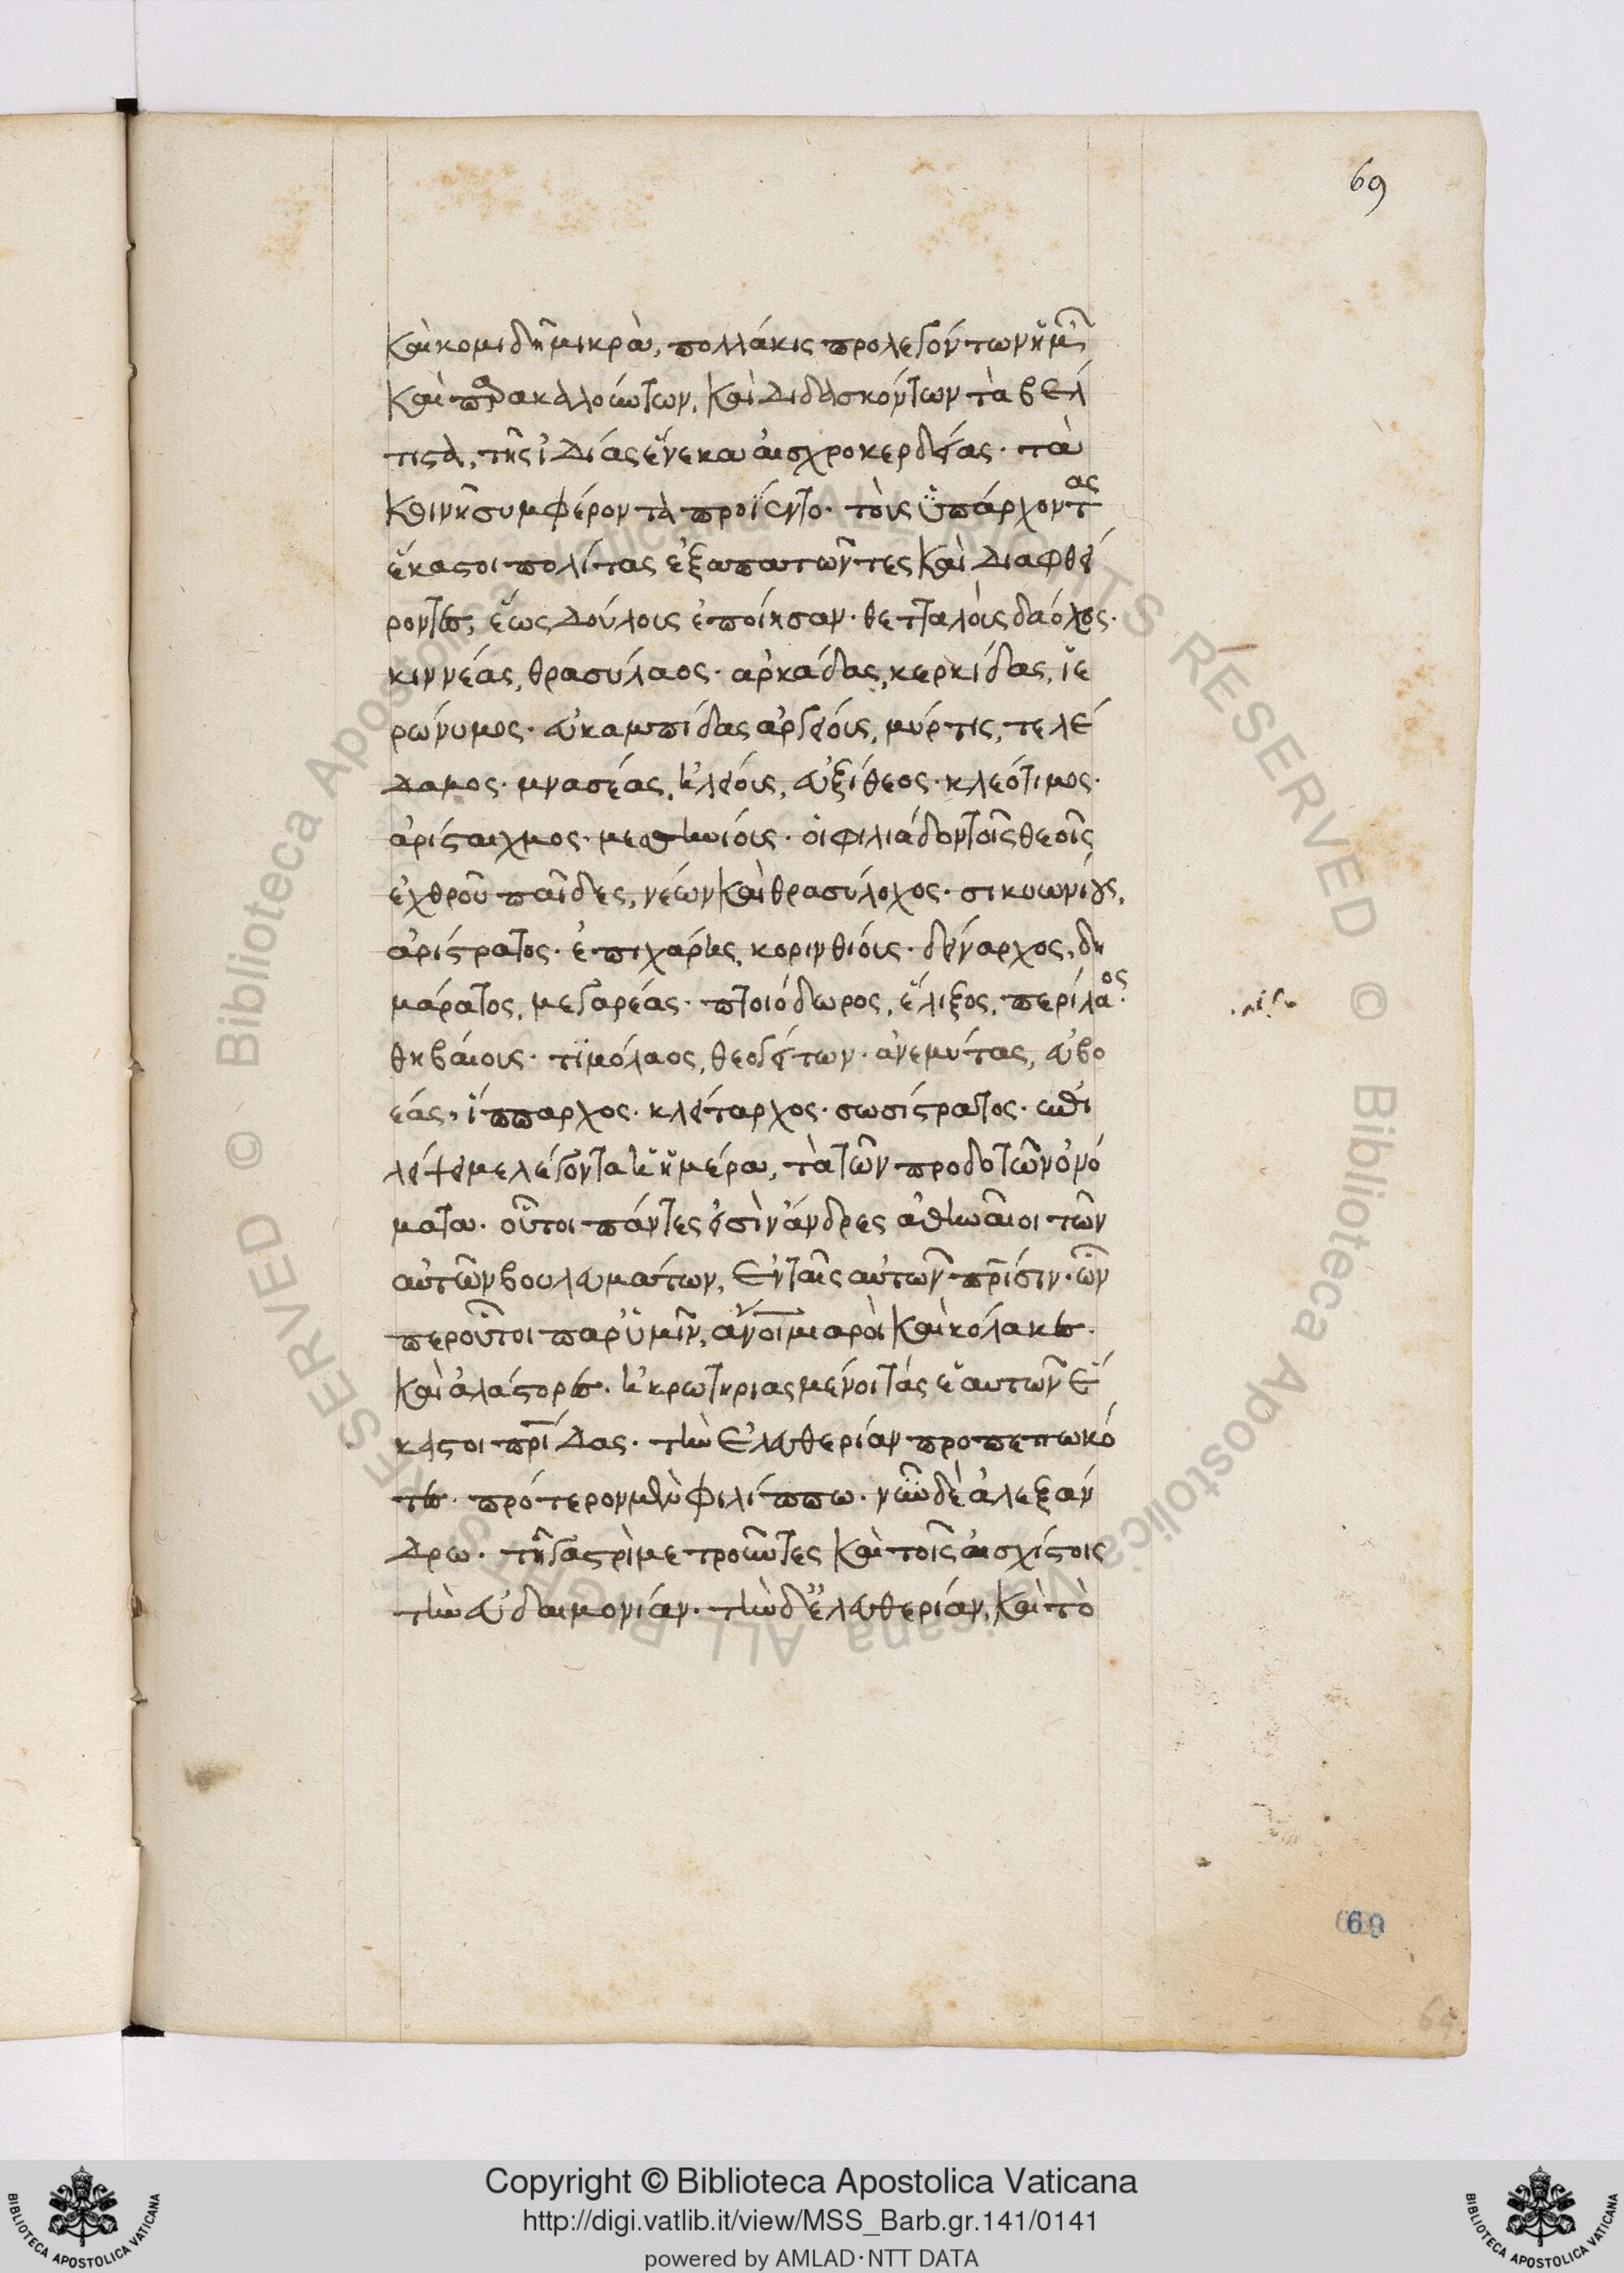 69
καὶ κομιδῆ μικρὰ, πολλάκις προλεγόντων ἡμῶν
καὶ παρακαλούντων, καὶ διδασκόντων τὰ βέλ
τιστα, τῆς ἰδίας ἕνεκα αἰσχροκερδείας· τὰ
κοινῆ συμφέροντα προΐεντο· τοὺς ὑπάρχοντας
ἕκαστοι πολίτας ἐξαπατῶντες καὶ διαφθεί
ροντες, ἕως δούλους ἐποίησαν· θετταλοὺς δαόχος·
κιννέας, θρασύλαος· ἀρκάδας, κερκίδας, ἱε
ρώνυμος· εὐκαμπίδας ἀργείους, μύρτις, τελέ
δαμος· μνασέας, ἠλείους, εὐξίθεος· κλεότιμος·
ἀρίσταιχμος· μεσηνίους· οἱ φιλιάδου τοῖς θεοῖς
ἐχθροῦ παῖδες, νέων καὶ θρασύλοχος· σικυωνίους,
ἀρίστρατος· ἐπιχάρης, κορινθίους· δείναρχος, δη
μάρατος, μεγαρέας· πτοιόδωρος, ἕλιξος, περίλαος·
θηβαίους· τϊμόλαος, θεογείτων· ἀνεμύτας, εὐβο
έας, ἵππαρχος· κλείταρχος· σωσίστρατος· ἐπι
λείψει με λέγοντα ἡ ἡμέρα, τὰ τῶν προδοτῶν ὀνό
ματα· οὗτοι πάντες εἰσὶν ἄνδρες ἀθηναῖοι τῶν
αὐτῶν βουλευμάτων, ἐν ταῖς αὐτῶν πατρίσιν· ὧν
περ οὗτοι παρ' ὑμῖν, ἄνοι μιαροὶ καὶ κόλακες·
καὶ ἀλάστορες· ἠκρωτηριασμένοι τὰς ἑαυτῶν ἕ
καστοι πρίδας· τὴν ἐλευθερίαν προπεπωκό
τες· πρότερον μὲν φιλίππω· νῦν δὲ ἀλεξάν
δρω· τῆ γαστρὶ μετροῦντες καὶ τοῖς αἰσχίστοις
τὴν εὐδαιμονίαν· τὴν δ' ἐλευθερίαν, καὶ τὸ
69
69
Copyright © Biblioteca Apostolica Vaticana
http://digi.vatlib.it/view/MSS_Barb.gr.141/0141
powered by AMLAD·NTT DATA